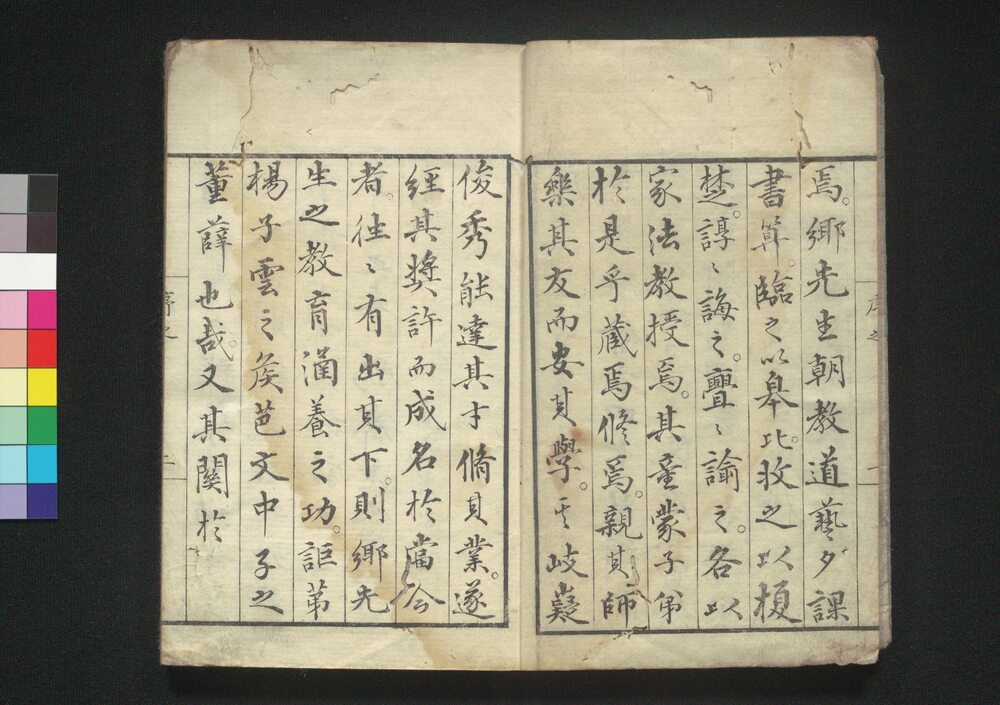 焉。鄉先生朝教道藝夕課
書算。臨之以皋比。收之以榎
楚。諄〻誨之。亹〻諭之。各以
家法教授焉。其童蒙子弟
於是乎藏焉脩焉。親其師
樂其友而安其學。其岐嶷
俊秀能達其才脩其業。遂
經其奬許而成名於當今
者。往〻有出其下。則鄉先
生之教育涵養之功。詎第
楊子雲之侯芭文中子之
董薛也哉。又其關於
序之
二
序之
二